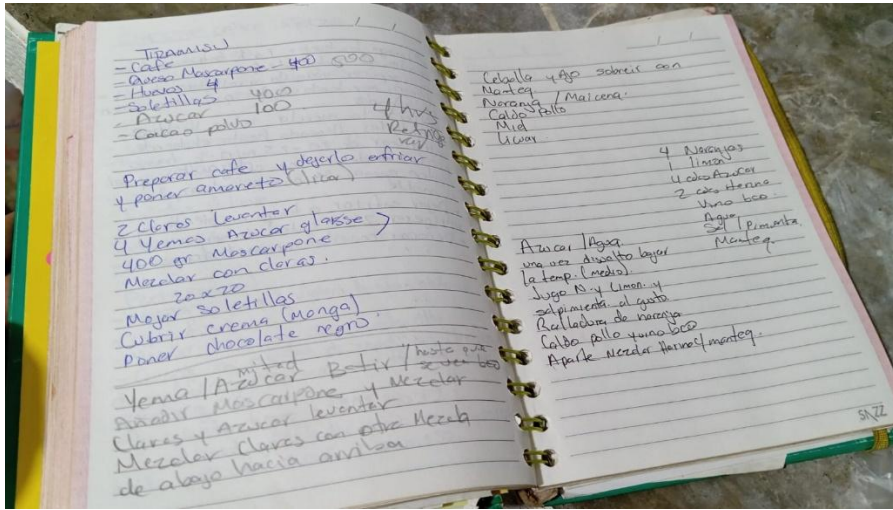 TIRAMISU
- Cafe
- Queso Mascarpone - 400 500
- Huevos 4
- Soletillas 400
- Azucar 100
- Cacao polvo
4 hrs
Refrige
rar
Preparar cafe y dejarlo enfriar
y poner amareto (licor)
2 Claras levantar
4 Yemas Azucar glasse >
400 gr Mascarpone
Mezclar con claras.
20x20
Mojar soletillas
Cubrir crema (Manga)
Poner chocolate negro.
Yema / Azucar mitad Batir / hasta que
se vea bco
Añadir Mascarpone y Mezclar
Claras y Azucar levantar
Mezclar Claras con otra Mezcla
de abajo hacia arriba
Cebolla y Ajo sobreir con
Manteq
Naranja / Maicena.
Caldo Pollo
Miel
Licuar
4 Naranjas
1 limon
4 cdas Azucar
2 cdas Harina
Vino bco.
Agua
Sal / Pimienta.
Manteq.
Azucar / Agua
una vez disuelto bajar
la temp. (medio).
Jugo N. y Limon y
salpimienta al gusto
Ralladura de naranja
Caldo pollo y vino bco
Aparte Mezclar Harina / manteq.